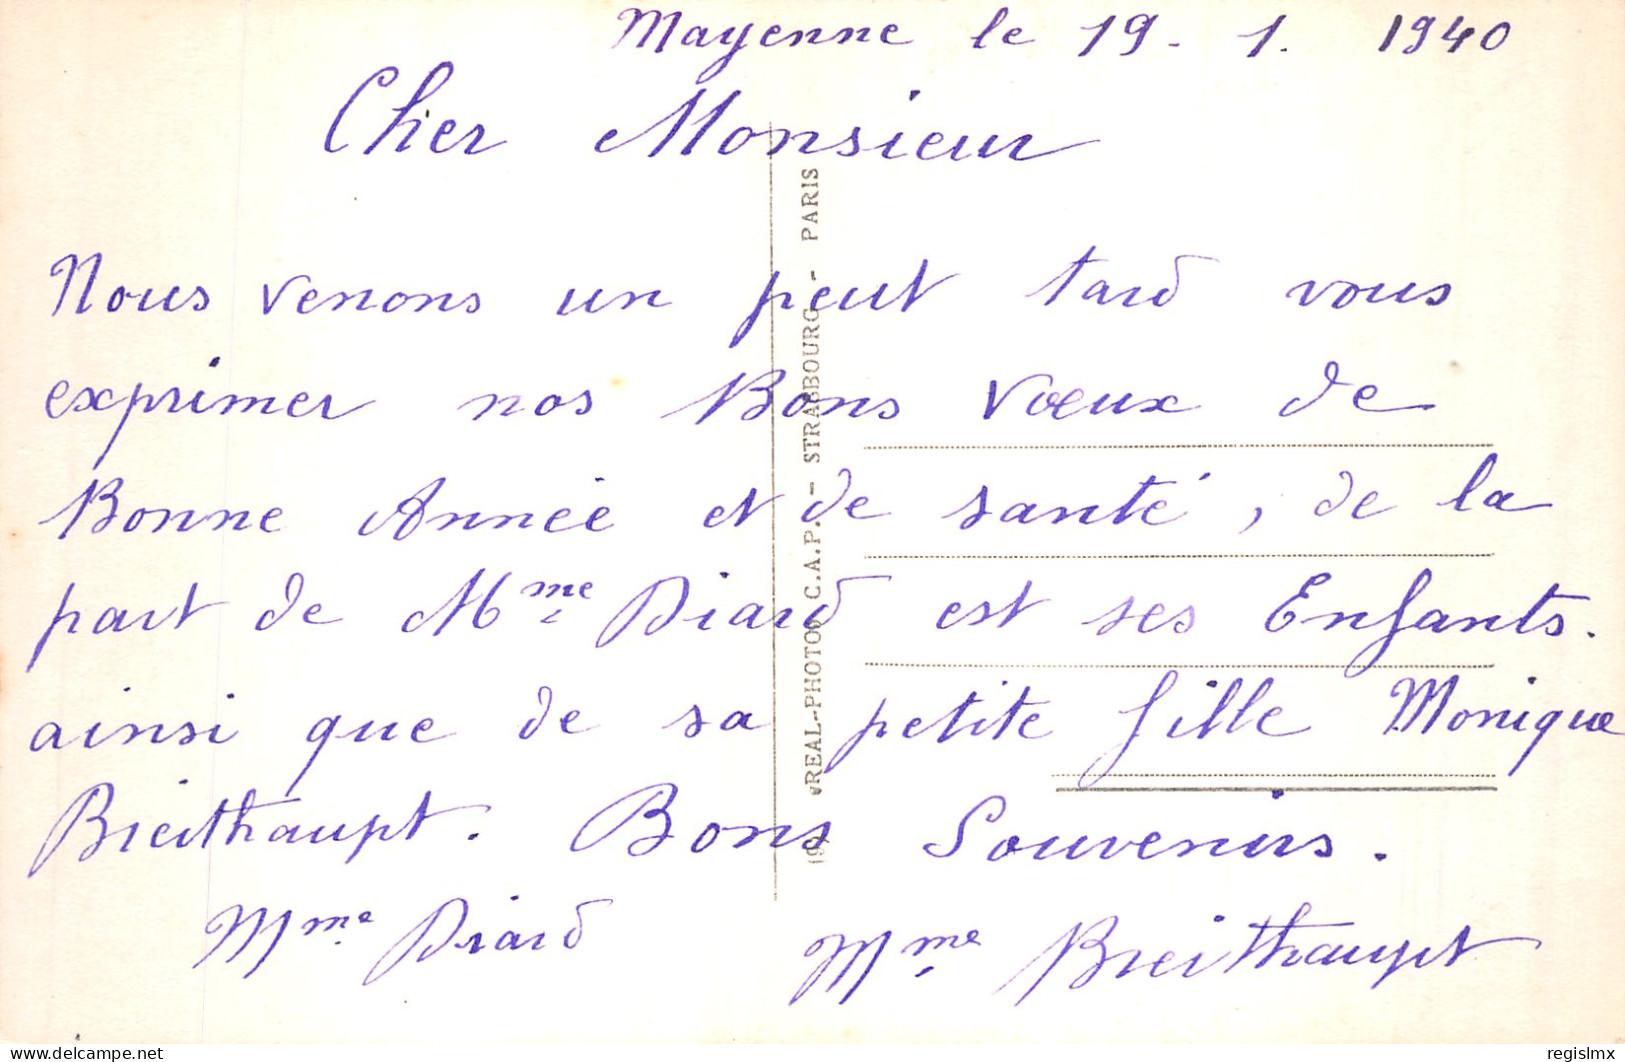 Mayenne le 19. 1. 1940
Cher Monsieur
Nous venons un peut tard vous
exprimer nos Bons Vœux de
Bonne Année et de santé, de la
part de Mme Diard est ses Enfants.
ainsi que de sa petite fille Monique
Breithaupt. Bons Souvenirs.
Mme Diard
Mme Breithaupt
REAL-PHOTO C.A.P. - STRASBOURG - PARIS
delcampe.net
regislmx